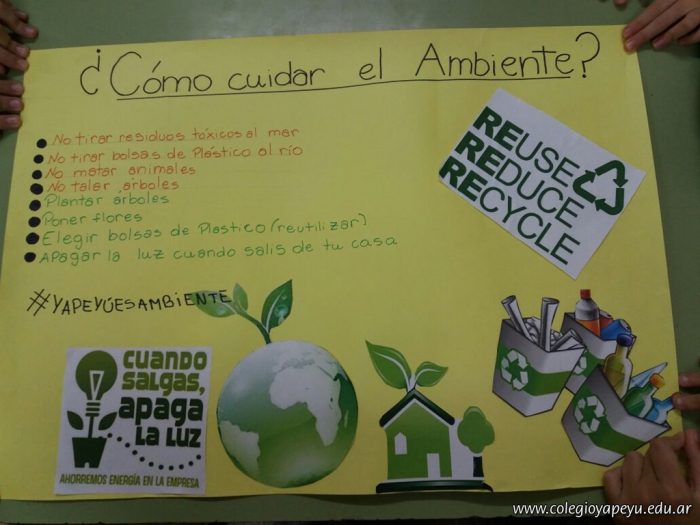 ¿Cómo cuidar el Ambiente?
No tirar residuos tóxicos al mar
No tirar bolsas de Plástico al río
No matar animales
No talar árboles
Plantar árboles
Poner flores
Elegir bolsas de Plastico (reutilizar)
APagar la luz cuando salis de tu casa
#YAPEYÚESAMBIENTE
REUSE
REDUCE
RECYCLE
CUANDO
SALGAS,
apaga
LA LUZ
AHORREMOS ENERGÍA EN LA EMPRESA
www.colegioyapeyu.edu.ar